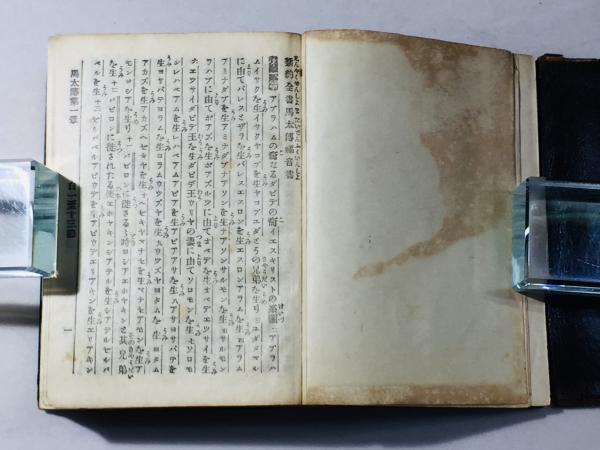 新約全書馬太傳福音書
アブラハムの裔なるダビデの裔イエスキリストの系圖 二 アブラハ
ムイサクを生イサクヤコブを生ヤコブユダとその兄弟を生 三 ユダタマル
に由てパレスとザラを生パレスエスロンを生エスロンアラムを生 四 アラム
アミナダブを生アミナダブナアソンを生ナアソンサルモンを生 五 サルモン
ラハブに由てボアズを生ボアズルツに由てオベデを生オベデエッサイを生 六
エッサイダビデ王を生ダビデ王ウリヤの妻に由てソロモンを生 七 ソロモ
ンレハベアムを生レハベアムアビアを生アビアアサを生 八 アサヨサパテを
生ヨサパテヨラムを生ヨラムウッズヤを生 九 ウッズヤヨタムを生ヨタム
アカズを生アカズヘゼキヤを生 十 ヘゼキヤマナセを生マナセアモンを生ア
モンヨシアを生 十一 バビロンに徙さるゝ時ヨシアエホヤキンと其兄弟
を生 十二 バビロンに徙されたる後エホヤキンシアテルを生シアテルゼルバ
ベルを生 十三 ゼルバベルアビウデを生アビウデエリアキンを生エリアキン
馬太傳第一章
一